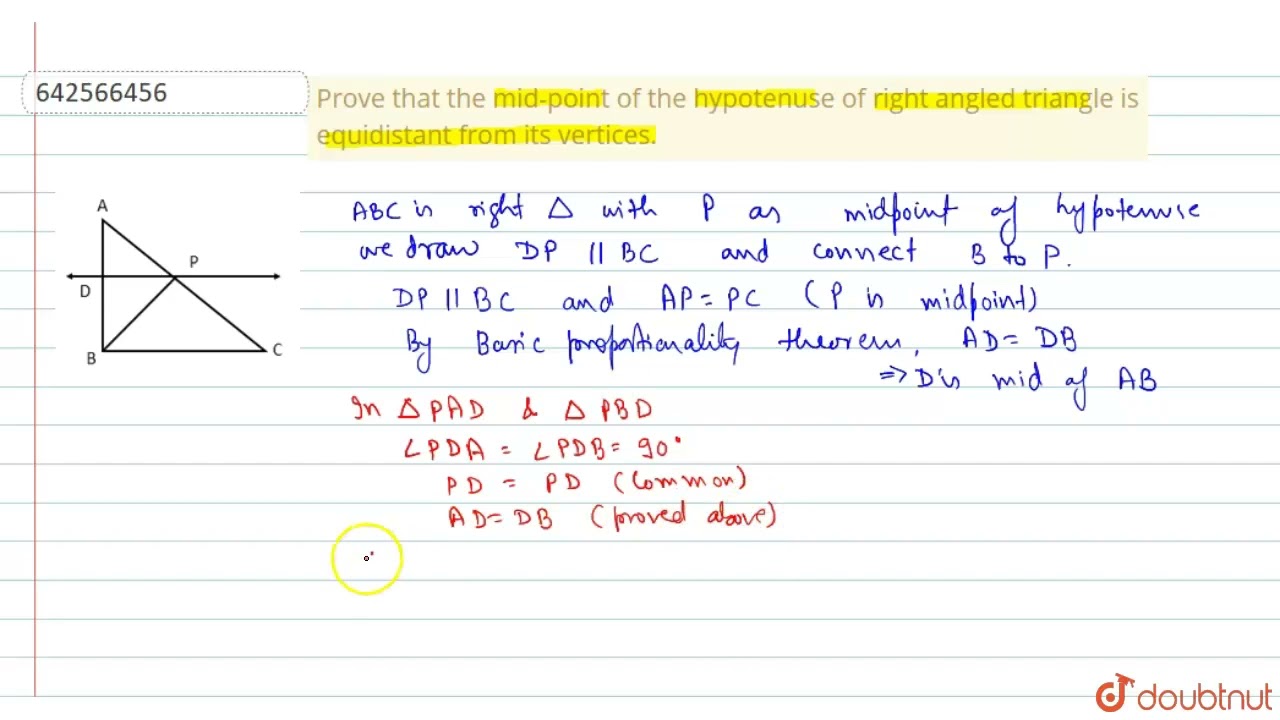 642566456
Prove that the mid-point of the hypotenuse of right angled triangle is
equidistant from its vertices.
A
P
D
B
C
ABC is right △ with P as midpoint of hypotenuse
we draw DP || BC and connect B to P.
DP || BC and AP = PC (P is midpoint)
By Basic proportionality theorem, AD = DB
⇒ D is mid of AB
In △ PAD & △ PBD
∠PDA = ∠PDB = 90°
PD = PD (Common)
AD = DB (proved above)
doubtnut